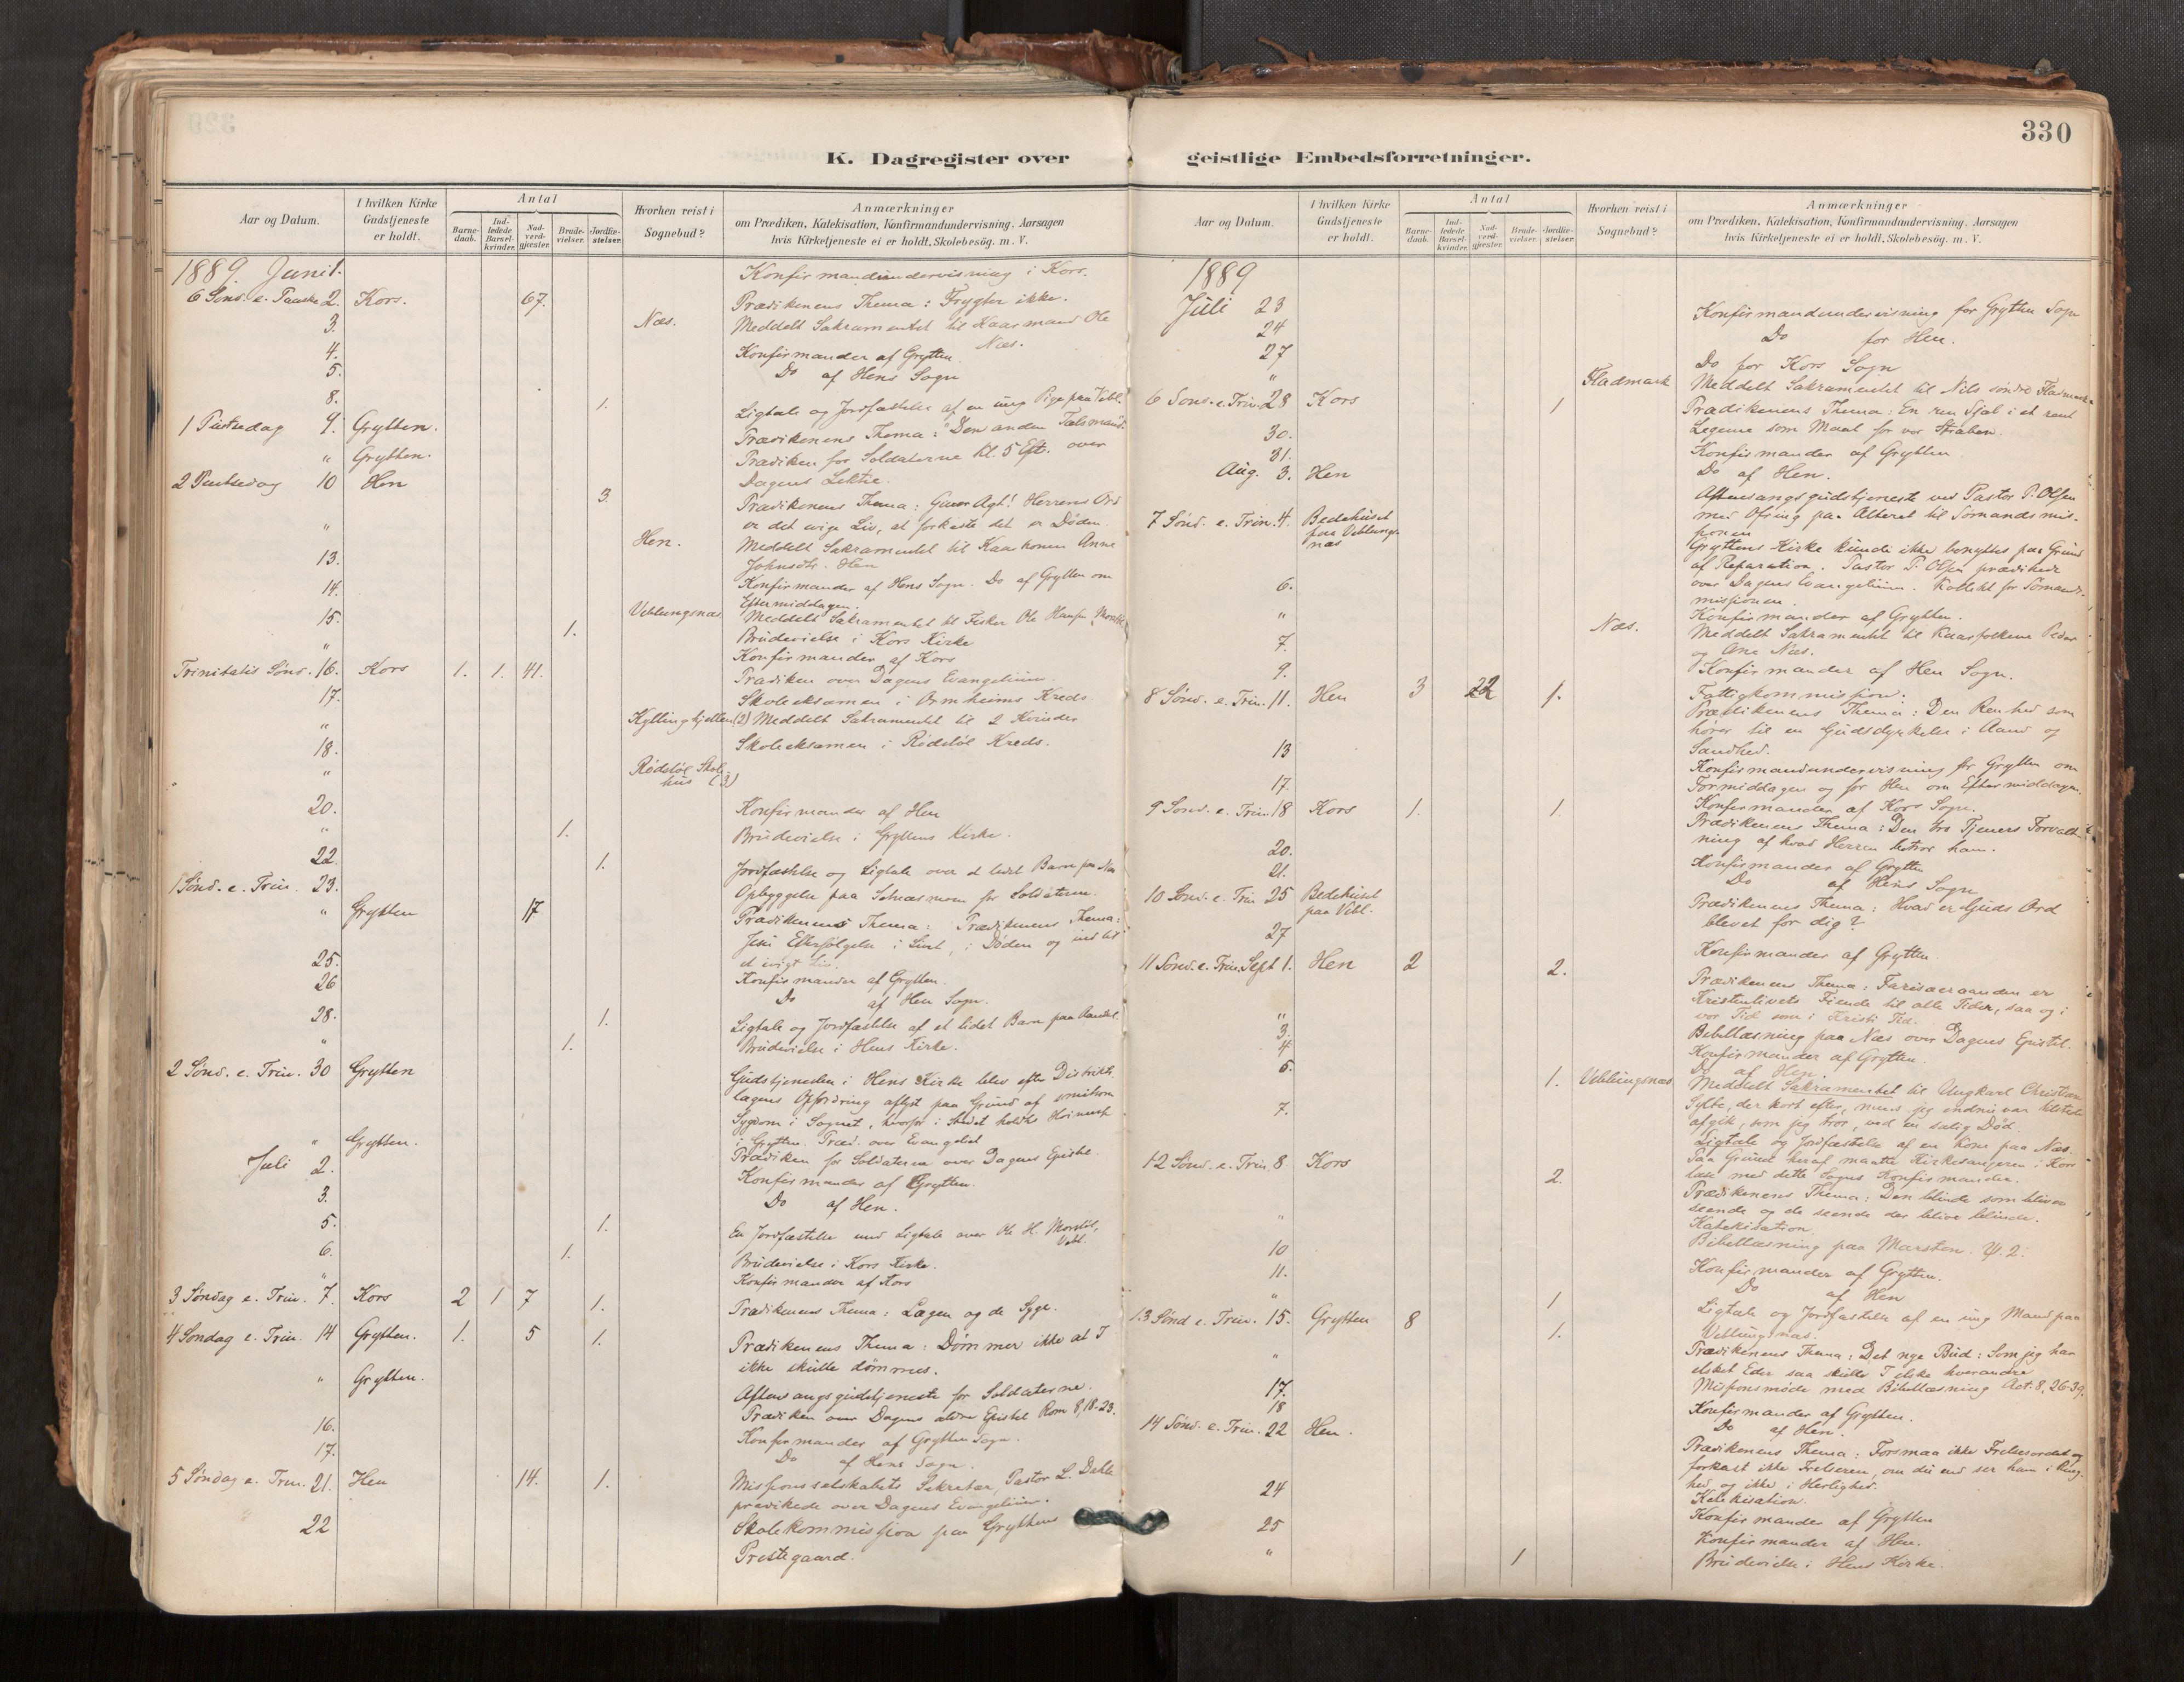 330
K. Dagregister over geistlige Embedsforretninger.
Aar og Datum.
I hvilken Kirke Gudstjeneste er holdt.
Antal
Barnedaab.
Indledede Barselkvinder.
Nadverdgjester.
Brudevielser.
Jordfæstelser.
Hvorhen reist i Sognebud?
Anmærkninger
om Prædiken, Katekisation, Konfirmandundervisning, Aarsagen
hvis Kirketjeneste ei er holdt, Skolebesøg. m. V.
1889 Juni 1. Konfirmandundervisning i Kors.
6 Sønd. e. Paaske 2. Kors. 67. Prædikenens Thema: Frygter ikke.
3. Næs. Meddelt Sakramentet til Kaarmand Ole
Næs.
4. Konfirmander af Grytten
5. Do af Hens Sogn
8. 1. Ligtale og Jordfæstelse af en ung Pige paa Vebl.
1 Pintsedag 9. Grytten. Prædikenens Thema: Den anden Talsmand.
" Grytten. Prædiken for Soldaterne Kl. 5 Eft. over
Dagens Lektie.
2 Pintsedag 10 Hen 3. Prædikenens Thema: Giver Agt! Herrens Ord
er det evige Liv, at forkaste det er Døden.
" Hen. Meddelt Sakramentet til Kaarkonen Anne
Johnsdtr. Hen
13. Konfirmander af Hens Sogn. Do af Grytten om
Eftermiddagen.
14. Veblungsnæs Meddelt Sakramentet til Fisker Ole Hansen Morstøl
15. 1. Brudevielse i Kors Kirke
" Konfirmander af Kors
Trinitatis Sønd. 16. Kors 1. 1. 41. Prædiken over Dagens Evangelium.
17. Skoleeksamen i Ormheims Kreds
" Kyllingkjellen (2) Meddelt Sakramentet til 2 Kvinder
18. Skoleeksamen i Rødstøl Kreds.
" Rødstøl Skolehus (3)
20. Konfirmander af Hen
" 1. Brudevielse i Gryttens Kirke.
22. 1. Jordfæstelse og Ligtale over et lidet Barn paa Næs
1 Sønd. e. Trin. 23. Opbyggelse paa Setnæsmoen for Soldaterne.
" Grytten 17 Prædikenens Thema: Prædikenens Thema:
Jesu Efterfølgelse i Livet, i Døden og ind til
et evigt Liv.
25. Konfirmander af Grytten.
26 Do af Hen Sogn.
28. 1. Ligtale og Jordfæstelse af et lidet Barn paa
" 1. Brudevielse i Hens Kirke.
2 Sønd. e. Trin. 30 Grytten Gudstjenesten i Hens Kirke blev efter Distrikts
lægens Opfordring aflyst paa Grund af smitsom
Sygdom i Sognet, hvorfor i Stedet holdtes Høimesse
i Grytten. Præd. over Evangeliet
" Grytten. Prædiken for Soldaterne over Dagens Epistel.
Juli 2. Konfirmander af Grytten.
3. Do af Hen.
5. 1. En Jordfæstelse med Ligtale over Ole H. Morstøl,
Vebl.
6. 1. Brudevielse i Kors Kirke.
" Konfirmander af Kors
3 Søndag e. Trin. 7. Kors 2 1 7 1. Prædikenens Thema: Lægen og de Syge.
4 Søndag e. Trin. 14 Grytten. 1. 5 1. Prædikenens Thema: Dømmer ikke at I
ikke skulle dømmes.
" Grytten. Aftensangsgudstjeneste for Soldaterne.
Prædiken over Dagens ældre Epistel Rom 8, 18-23.
16. Konfirmander af Grytten Sogn.
17. Do af Hens Sogn.
5 Søndag e. Trin. 21. Hen 14. 1. Missionsselskabets Sekretær, Pastor L. Dahle
prædikede over Dagens Evangelium.
22 Skolekommission paa Gryttens
Prestegaard.
Aar og Datum.
I hvilken Kirke Gudstjeneste er holdt.
Antal
Barnedaab.
Indledede Barselkvinder.
Nadverdgjester.
Brudevielser.
Jordfæstelser.
Hvorhen reist i Sognebud?
Anmærkninger
om Prædiken, Katekisation, Konfirmandundervisning, Aarsagen
hvis Kirketjeneste ei er holdt, Skolebesøg. m. V.
1889
Juli 23 Konfirmandundervisning for Grytten Sogn
24 Do for Hen.
27 Do for Kors Sogn
" Fladmark Meddelt Sakramentet til Nils søndre Fladmark
6 Sønd. e. Trin. 28 Kors 1 Prædikenens Thema: En ren Sjæl i et rent
Legeme som Maal for vor Stræben.
30. Konfirmander af Grytten
31. Do af Hen.
Aug. 3. Hen Aftensangsgudstjeneste ved Pastor P. Olsen
med Ofring paa Alteret til Sømandsmissionen
7 Sønd. e. Trin. 4. Bedehuset paa Veblungsnæs Gryttens Kirke kunde ikke benyttes paa Grund
af Reparation. Pastor P. Olsen prædikede
over Dagens Evangelium. Kollekt for Sømandsmissionen.
6. Konfirmander af Grytten.
" Næs. Meddelt Sakramentet til Kaarfolkene Peder
og Ane Næs.
7. Konfirmander af Hen Sogn.
9. Fattigkommission.
8 Sønd. e. Trin. 11. Hen 3 22 1. Prædikenens Thema: Den Renhed som
hører til en Gudsdyrkelse i Aand og
Sandhed.
13 Konfirmandundervisning for Grytten om
Formiddagen og for Hen om Eftermiddagen.
17. Konfirmander af Kors Sogn.
9 Sønd. e. Trin. 18 Kors 1. 1. Prædikenens Thema: Den tro Tjeners Forvaltning af hvad Herren betror ham.
20. Konfirmander af Grytten
21. Do af Hens Sogn
10 Sønd. e. Trin 25 Bedehuset paa Vebl. Prædikenens Thema: Hvad er Guds Ord
blevet for dig?
27 Konfirmander af Grytten.
11 Sønd. e. Trin. Sept 1. Hen 2 2. Prædikenens Thema: Farisæeraanden er
Kristenlivets Fiende til alle Tider, saa og i
vor Tid som i Kristi Tid.
" Bibellæsning paa Næs over Dagens Epistel.
3. Konfirmander af Grytten.
4 Do af Hen.
5. 1. Veblungsnæs Meddelt Sakramentet til Ungkarl Christian
Sylte, der kort efter, mens jeg endnu var tilstede
afgik, som jeg tror, ved en salig Død.
7. Ligtale og Jordfæstelse af en Kone paa Næs.
Paa Grund heraf maatte Kirkesangeren i Kors
læse med dette Sogns Konfirmander.
12 Sønd. e. Trin. 8 Kors 2. Prædikenens Thema: Den blinde som bliver
seende og de seende der blive blinde.
Katekisation
" Bibellæsning paa Marsten. ψ. 2.
10 Konfirmander af Grytten.
11. Do af Hen
" 1 Ligtale og Jordfæstelse af en ung Mand paa
Veblungsnæs.
13 Sønd e. Trin. 15. Grytten 8 1. Prædikenens Thema: Det nye Bud: Som jeg har
elsket Eder saa skulle I elske hverandre
" Missionsmøde med Bibellæsning Act. 8, 26-39.
17. Konfirmander af Grytten.
18 Do af Hen.
14 Sønd. e. Trin. 22 Hen. Prædikenens Thema: Forsmaa ikke Frelsesordet og
forkast ikke Frelseren, om du end ser ham i Ringhed og ikke i Herlighed.
Katekisation.
24 Konfirmander af Grytten
25 Konfirmander af Hen.
" 1 Brudevielse i Hens Kirke.